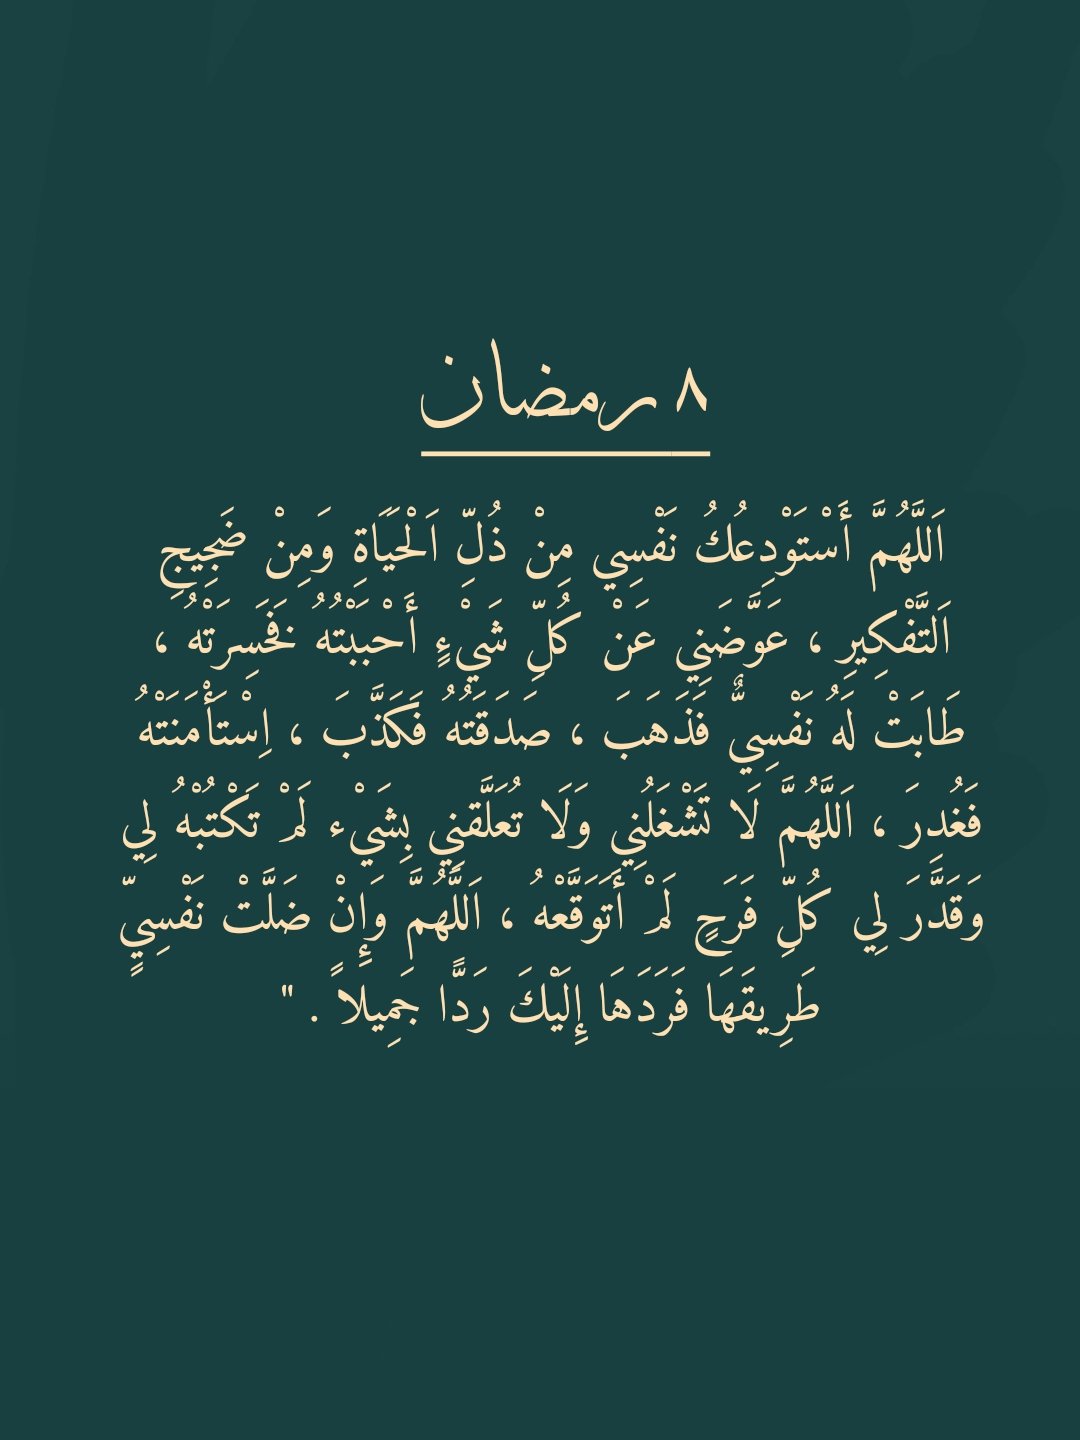 ٨ رمضان
اَللَّهُمَّ أَسْتَوْدِعُكُ نَفْسِي مِنْ ذُلِّ اَلْحَيَاةِ وَمِنْ ضَجِيجِ
اَلتَّفْكِيرِ ، عَوَّضَنِي عَنْ كُلِّ شَيْءٍ أَحْبَبْتُهُ فَخَسِرَتْهُ ،
طَابَتْ لَهُ نَفْسِيٌّ فَذَهَبَ ، صَدَقَتُهُ فَكَذَّبَ ، اِسْتَأْمَنَتْهُ
فَغُدِرَ ، اَللَّهُمَّ لَا تَشْغَلُنِي وَلَا تُعَلَّقنِي بِشَيْء لَمْ تَكْتُبْهُ لِي
وَقَدَّرَ لِي كُلِّ فَرَحٍ لَمْ أَتَوَقَّعْهُ ، اَللَّهُمَّ وَإِنْ ضَلَّتْ نَفْسِيٍّ
طَرِيقَهَا فَرَدَهَا إِلَيْكَ رَدًّا جَمِيلاً . "